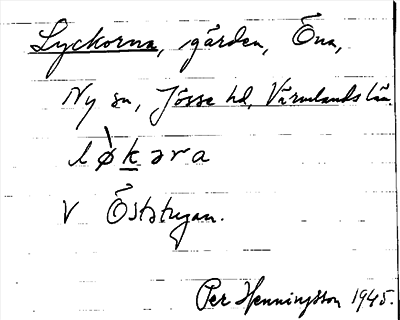 Lyckorna, gården, Öna,
Ny sn, Jösse hd, Värmlands län.
lø̀kəra
V Öststugan.
Per Henningsson 1945.